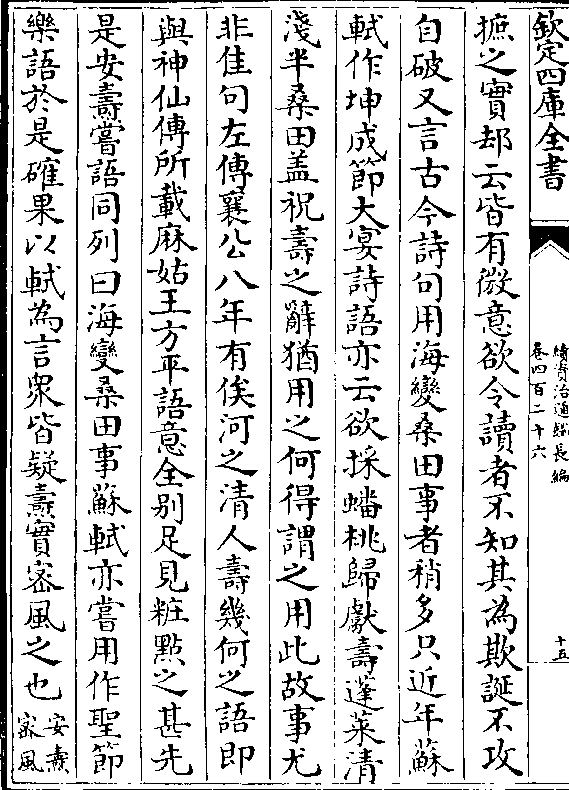 欽定四庫全書
續資治通鑑長編
卷四百二十六
十五
摭之實却云皆有微意欲令讀者不知其為欺誕不攻
自破又言古今詩句用海變桑田事者稍多只近年蘇
軾作坤成節大宴詩語亦云欲採蟠桃歸獻壽蓬萊清
淺半桑田盖祝壽之辭猶用之何得謂之用此故事尤
非佳句左傳襄公八年有俟河之清人壽幾何之語即
與神仙傳所載麻姑王方平語意全别足見粧㸃之甚先
是安燾嘗語同列曰海變桑田事蘇軾亦嘗用作聖節
樂語於是確果以軾為言衆皆疑燾實宻風之也安燾
宻風